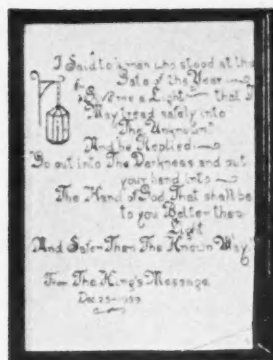 I Said to a man who stood at the
Gate of the Year
Give me a Light that I
May tread safely into
The Unknown"
And he Replied
"Go out into The Darkness and put
your hand into
The Hand of God That shall be
to you Better than
Light
And Safer Than The Known Way"
From The King's Message
Dec 25-1939